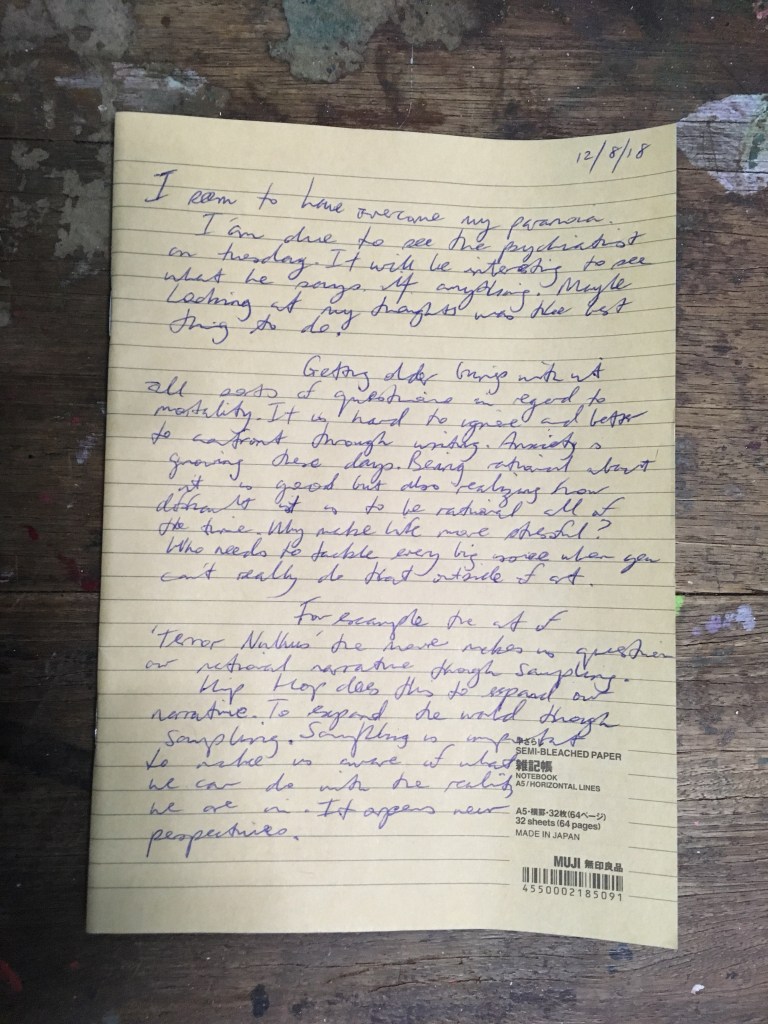 12/8/18
I seem to have overcome my paranoia.
I am due to see the psychiatrist
on tuesday. It will be interesting to see
what he says. If anything. Maybe
Looking at my thoughts was the best
thing to do.
Getting older brings with it
all sorts of questions in regard to
mortality. It is hard to ignore and better
to confront through writing. Anxiety is
growing these days. Being rational about
it is good but also realizing how
difficult it is to be rational all of
the time. Why make life more stressful?
Who needs to tackle every big issue when you
can't really do that outside of art.
For example the art of
'Terror Nullius' the movie makes us question
our national narrative though sampling.
Hip Hop does this to expand our
narrative. To expand the world though
Sampling. Sampling is important
to make us aware of what
we can do with the reality
we are in. It opens new
perspectives.
SEMI-BLEACHED PAPER
雑記帳
NOTEBOOK
A5 / HORIZONTAL LINES
A5・横罫・32枚(64ページ)
32 sheets (64 pages)
MADE IN JAPAN
MUJI 無印良品
4550002185091